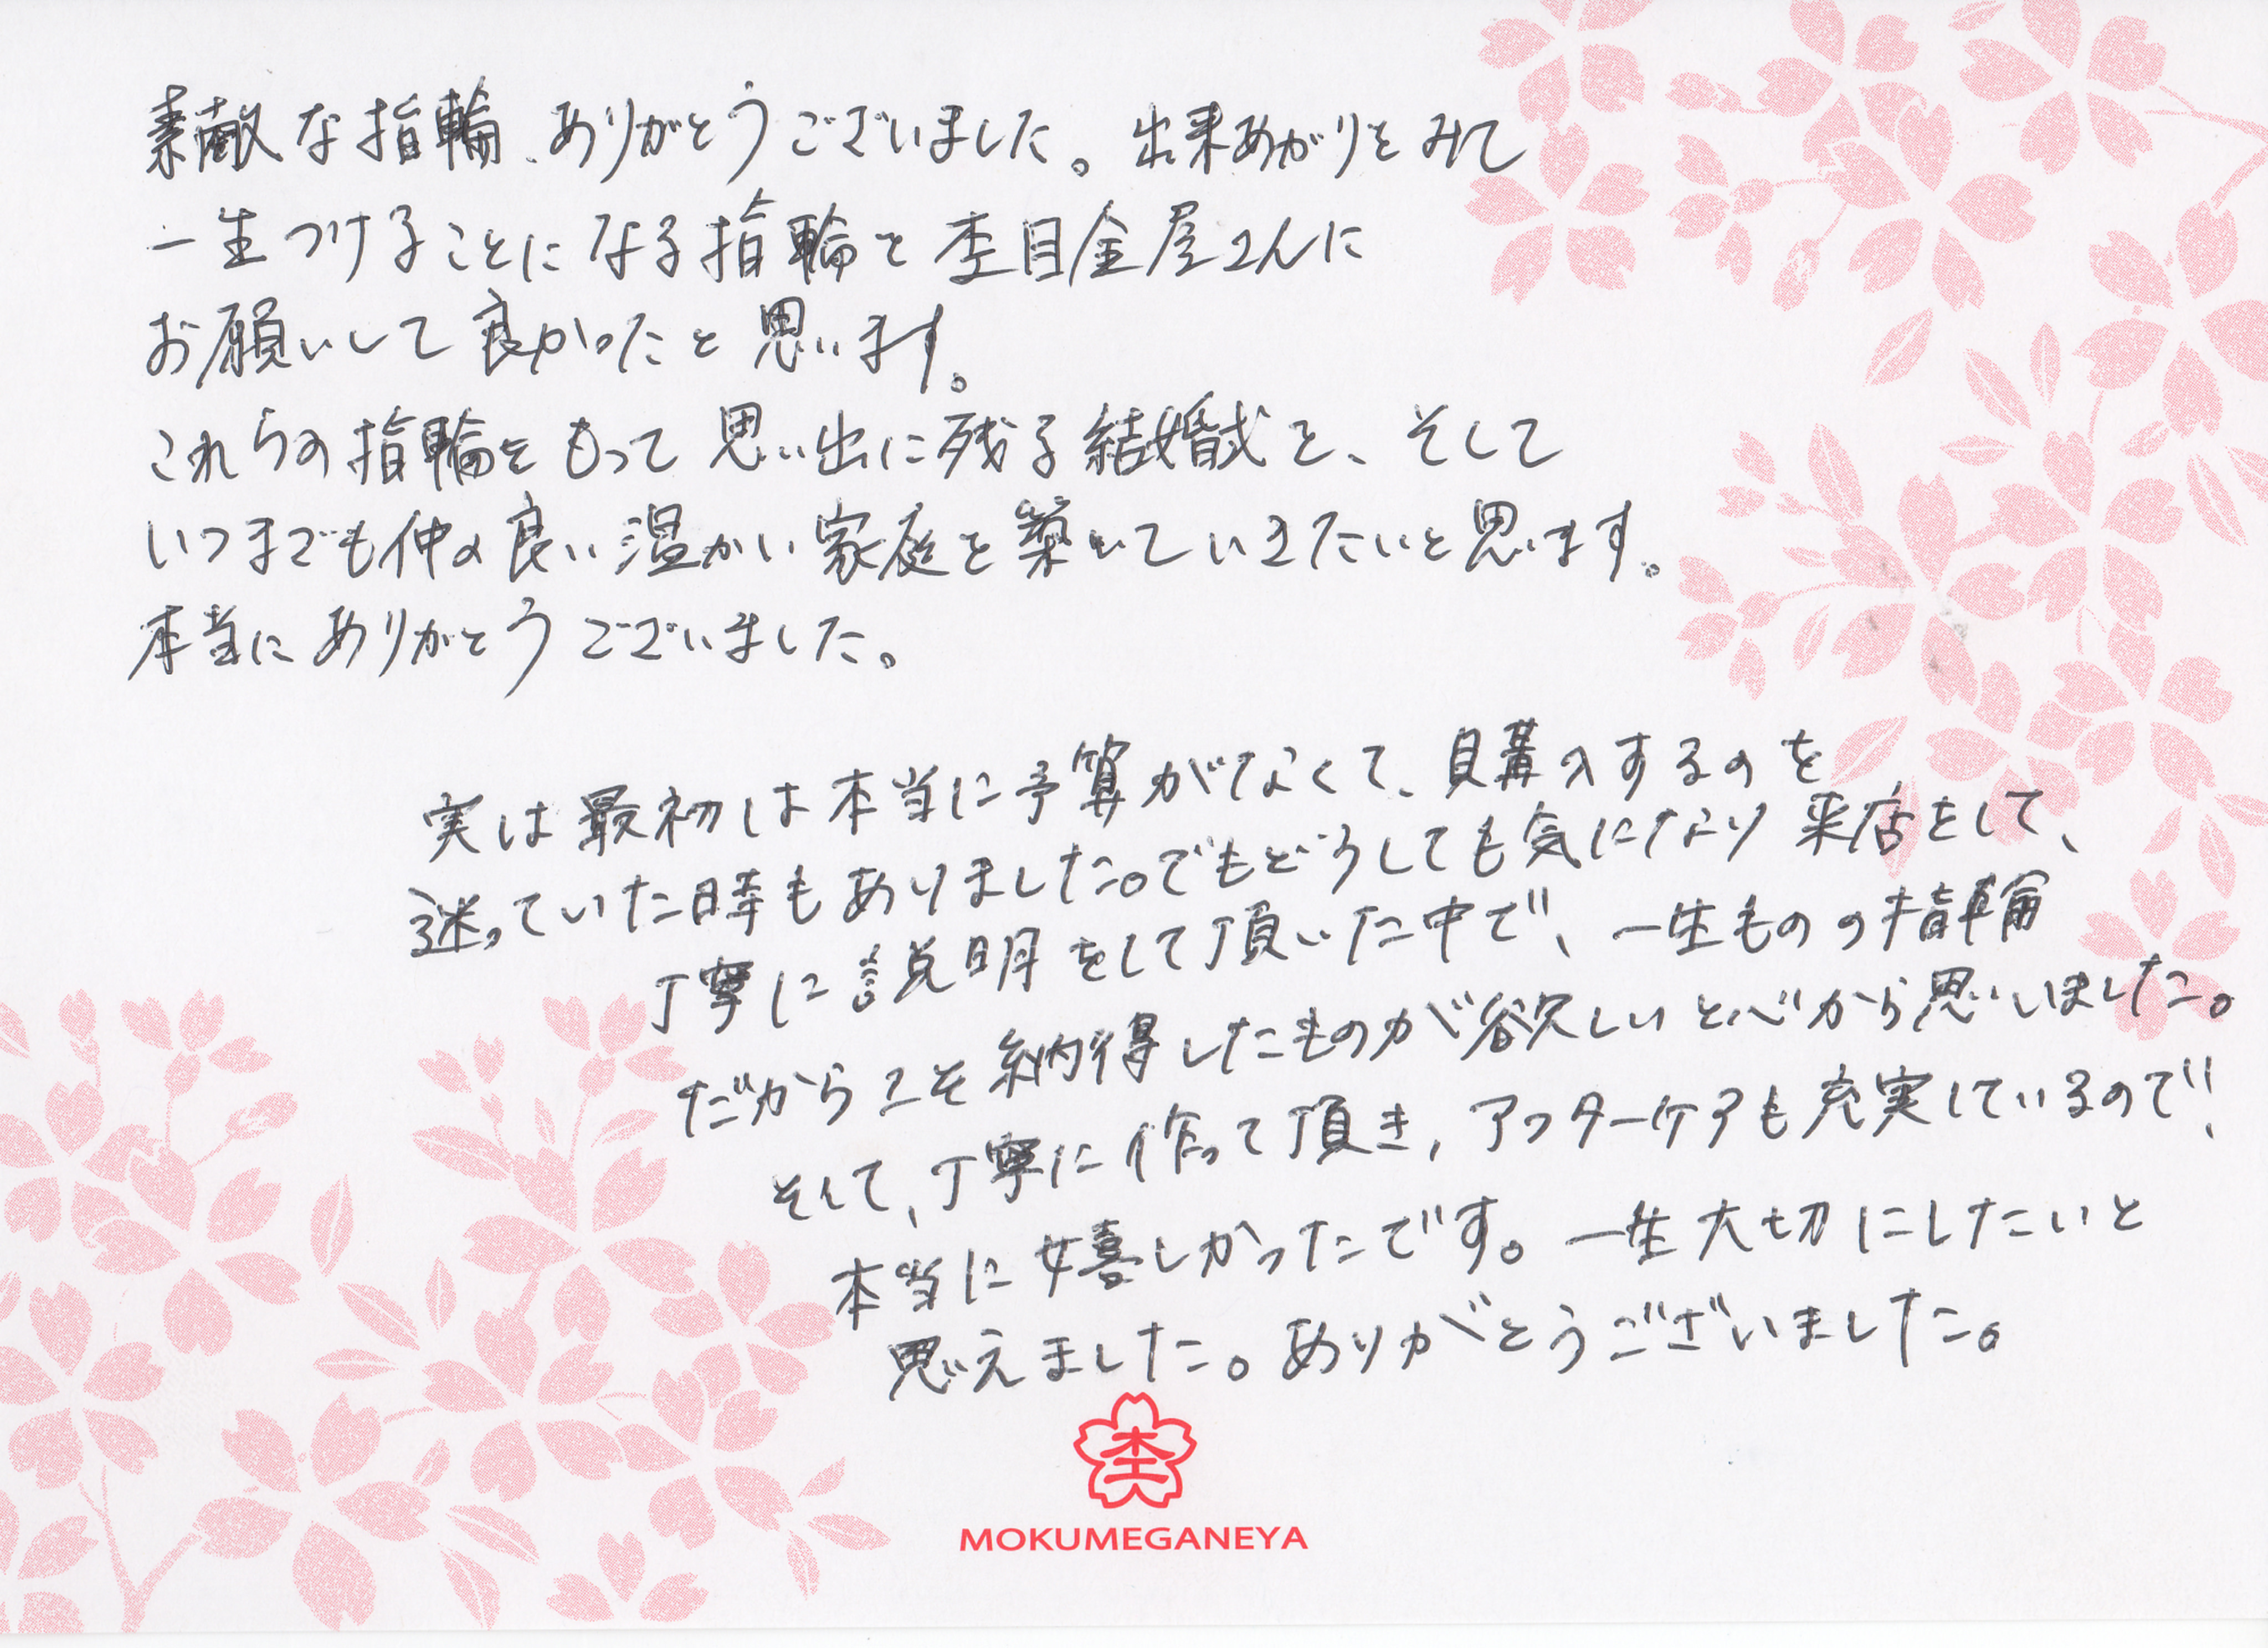 素敵な指輪、ありがとうございました。出来あがりをみて
一生つけることになる指輪を杢目金屋さんに
お願いして良かったと思います。
これらの指輪をもって思い出に残る結婚式を、そして
いつまでも仲の良い温かい家庭を築いていきたいと思います。
本当にありがとうございました。
実は最初は本当に予算がなくて、購入するのを
迷っていた時もありました。でもどうしても気になり来店をして、
丁寧に説明をして頂いた中で、一生ものの指輪
だからこそ納得したものが欲しいと心から思いました。
そして、丁寧に作って頂き、アフターケアも充実しているので、
本当に嬉しかったです。一生大切にしたいと
思えました。ありがとうございました。
杢
MOKUMEGANEYA